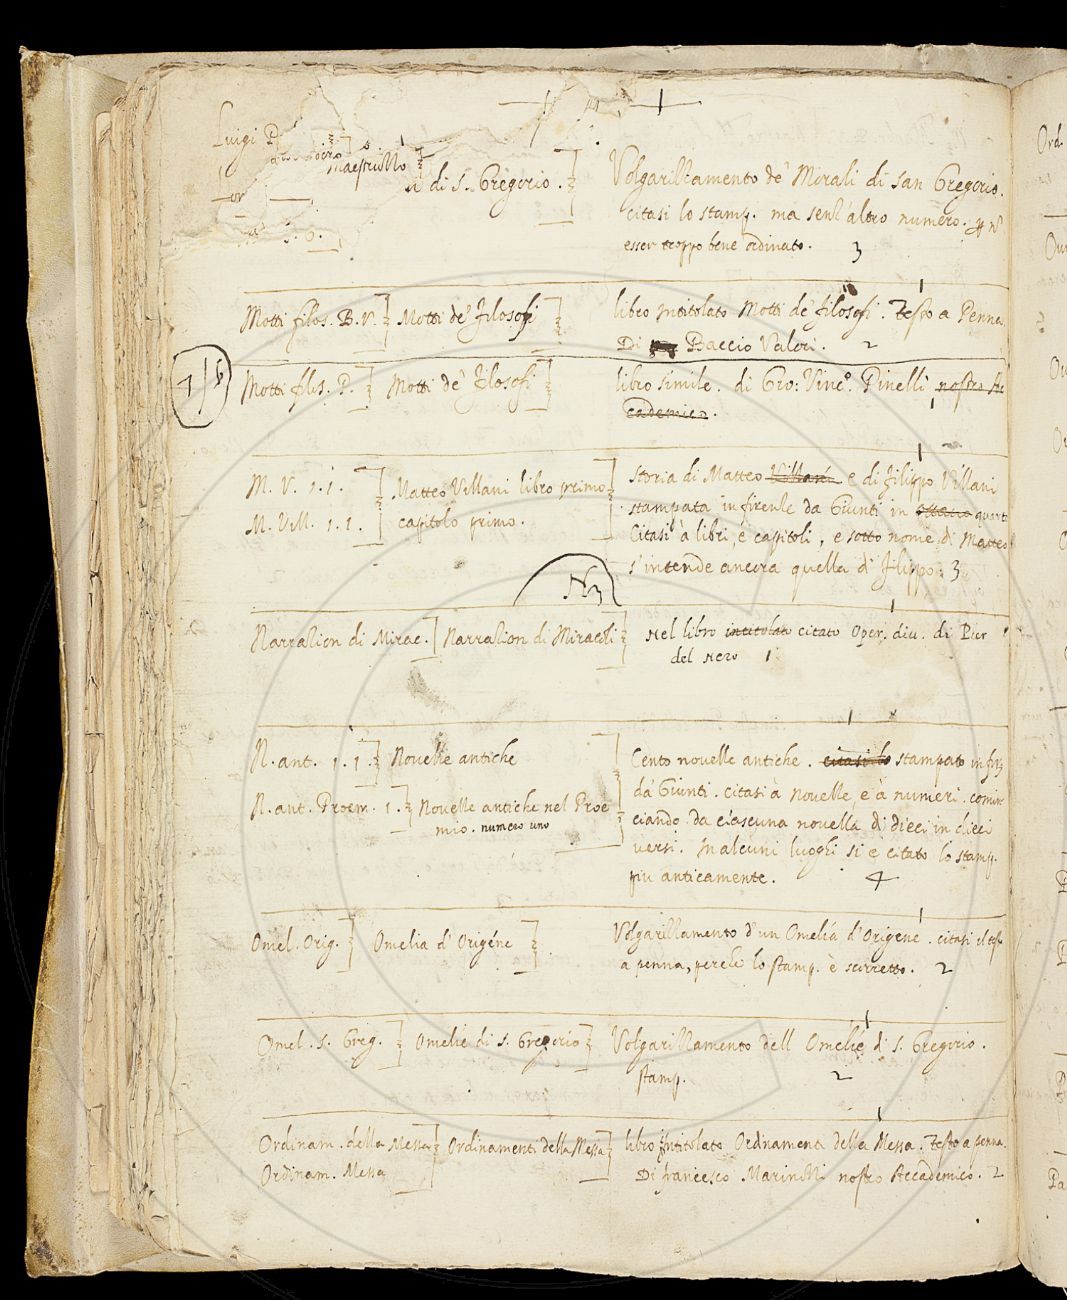 Luigi P
Maestrello
di S. Gregorio.
Volgarizzamento de' Morali di san Gregorio.
citasi lo stamp. ma senz'altro numero.
esser troppo bene ordinato. 3
Motti filos. B. V. Motti de' filosofi
libro intitolato Motti de' filosofi. Testo a Penna.
Di Baccio Valori. 2
Motti filos. P. Motti de' filosofi
libro simile. di Gio: Vinc.º Pinelli nostro Ac
cademico.
M. V. 1. 1. Matteo Villani libro primo
M. Vill. 1. 1. capitolo primo.
Storia di Matteo Villani e di filippo Villani
stampata in firenze da Giunti in ottavo quarto
Citasi à libri, e capitoli, e sotto nome di Matteo
s'intende ancora quella di filippo. 3
N
Narrazion di Mirac. Narrazion di Miracoli
Nel libro intitolato citato Oper. div. di Pier
del Nero 1
N. ant. 1. 1. Novelle antiche
N. ant. Proem. 1. Novelle antiche nel Proe
mio. numero uno
Cento novelle antiche. citasi lo stampato in frz
da Giunti. citasi à Novelle, e à numeri. comin
ciando da ciascuna novella di dieci in dieci
versi. In alcuni luoghi si è citato lo stamp.
piu anticamente. 4
Omel. Orig. Omelia d'Origéne
Volgarizzamento d'un Omelía d'Origene. citasi il test
a penna, perché lo stamp. è scorretto. 2
Omel. S. Greg. Omelie di S. Gregorio
Volgarizzamento dell Omelie di S. Gregorio.
stamp. 2
Ordinam. della Messa Ordinamenti della Messa
Ordinam. Messa
libro intitolato Ordinamenti della Messa. Testo a penna.
Di francesco Marinozzi nostro Accademico. 2
Ord.